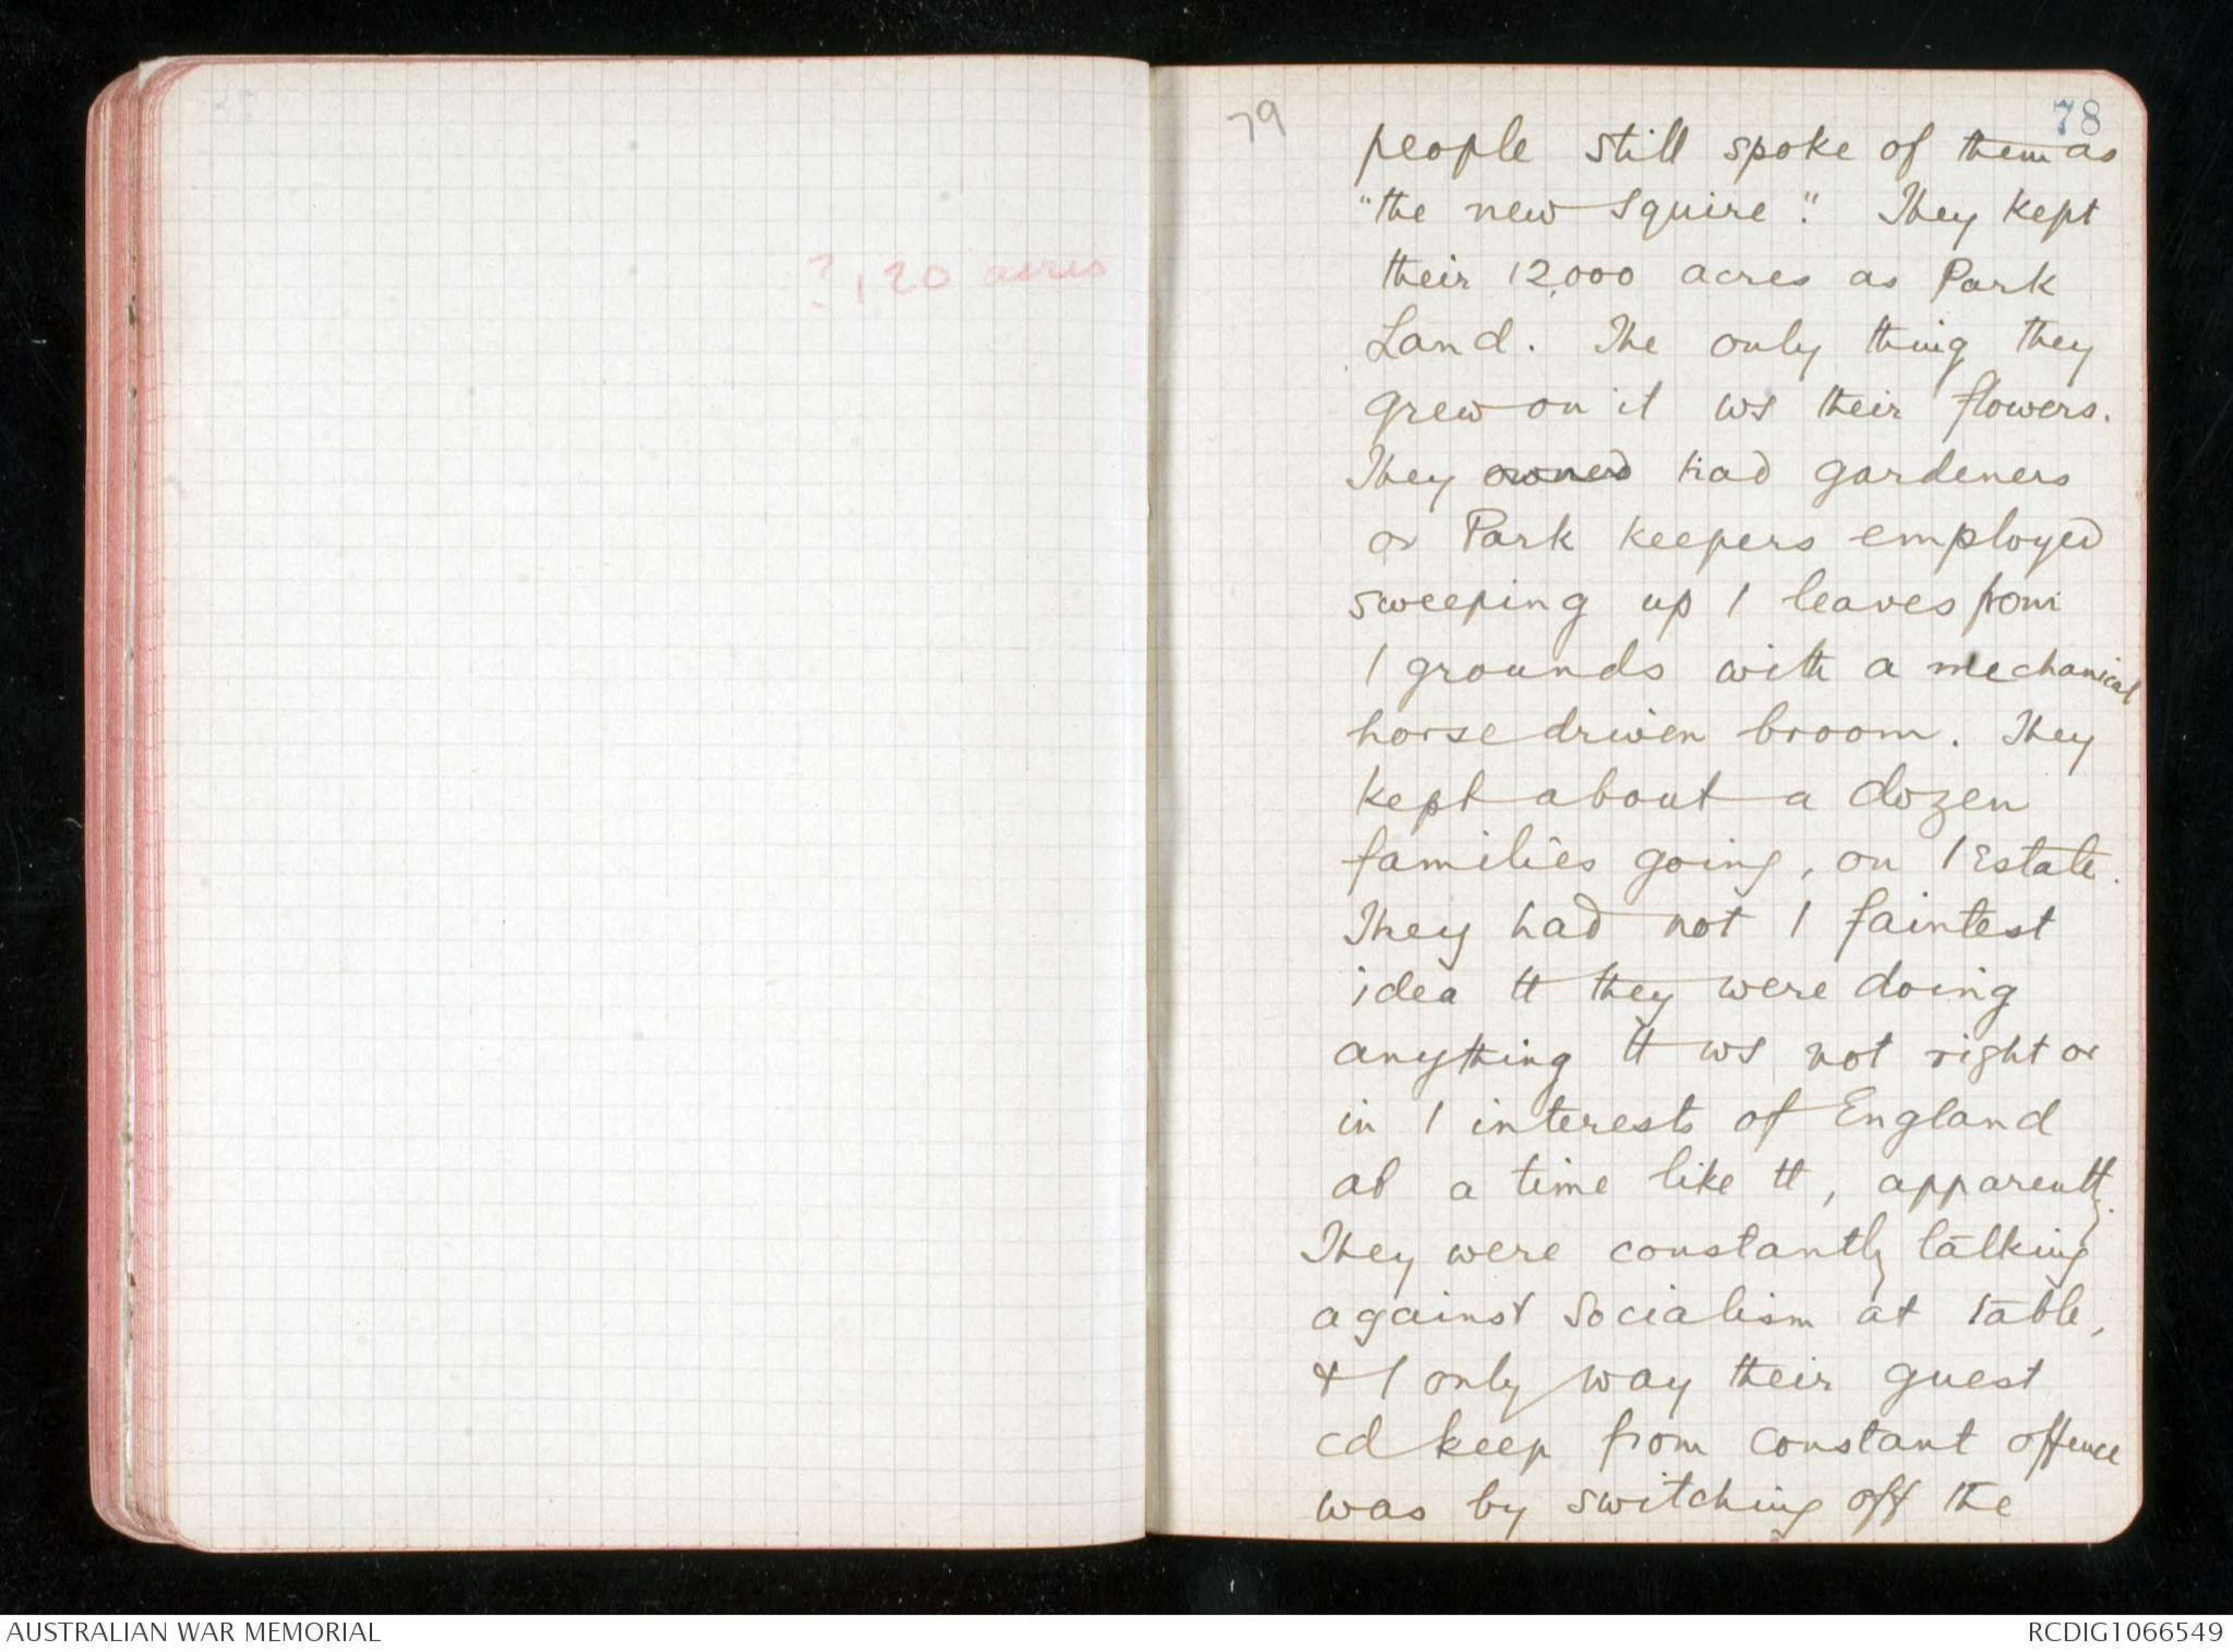 ?, 120 acres
79
78
people still spoke of them as
"the new squire". They kept
their 12,000 acres as Park
Land. The only thing they
grew on it ws their flowers.
They owned had gardeners
or Park keepers employed
sweeping up / leaves from
/ grounds with a mechanical
horse driven broom. They
kept about a dozen
families going, on / Estate.
They had not / faintest
idea tt they were doing
anything tt ws not right or
in / interests of England
at a time like tt, apparently.
They were constantly talking
against Socialism at table,
& / only way their guest
cd keep from constant offence
was by switching off the
AUSTRALIAN WAR MEMORIAL
RCDIG1066549